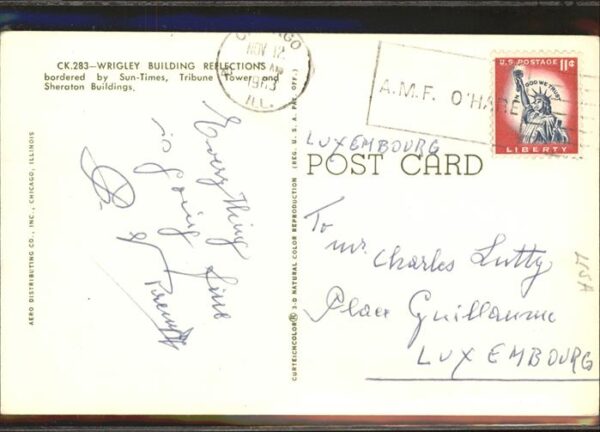 CK.283—WRIGLEY BUILDING REFLECTIONS
bordered by Sun-Times, Tribune Tower and
Sheraton Buildings.
CHICAGO
NOV 12
AM
1963
ILL.
A.M.F. O'HARE
U.S. POSTAGE 11¢
IN GOD WE TRUST
LIBERTY
LUXEMBOURG
POST CARD
Everything
is going fine
AERO DISTRIBUTING CO., INC., CHICAGO, ILLINOIS
CURTEICHCOLOR® 3-D NATURAL COLOR REPRODUCTION (REG. U.S.A. PAT. OFF.)
To
Mr Charles Lutty
Place Guillaume
LUXEMBOURG
USA